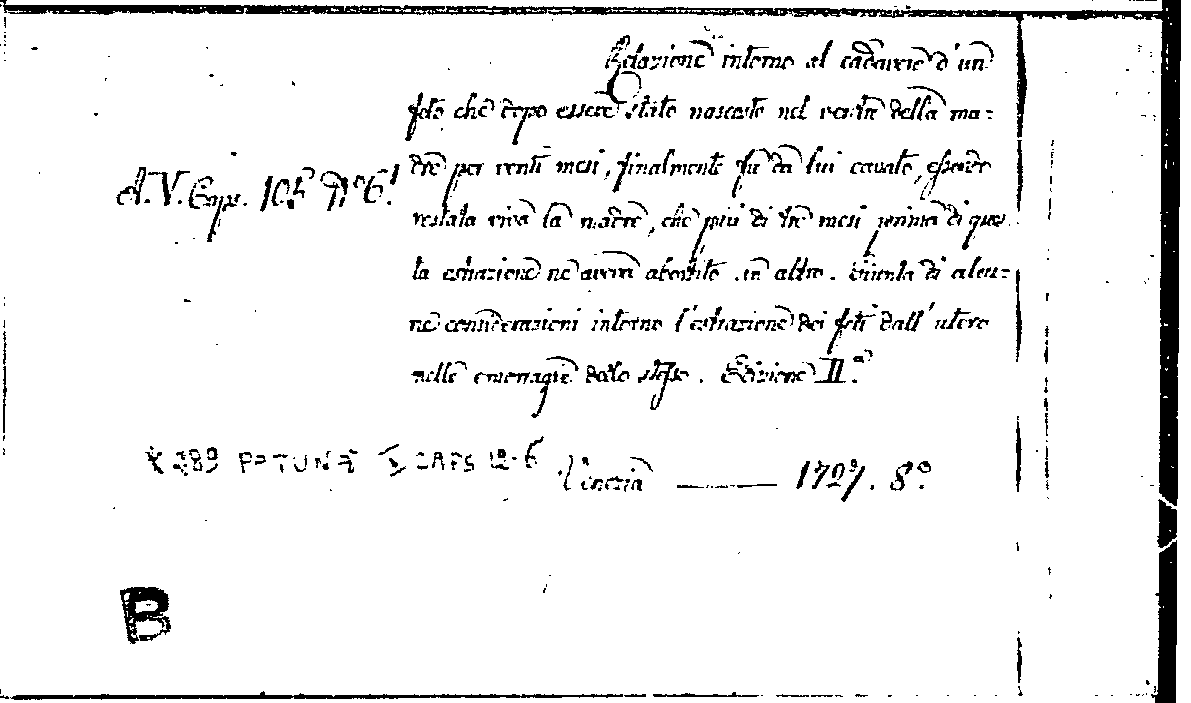 Relazione intorno al cadavere d'un
feto che dopo essere stato nascosto nel ventre della ma-
dre per venti mesi, finalmente fu da lui cavato, essendo
restata viva la madre, che più di tre mesi prima di ques-
ta estrazione ne aveva abortito un altro. Giunta di alcu-
ne considerazioni intorno l'estrazione dei feti dall'utero
nelle emorragie dello stesso. Edizione II.a
A.V. Caps. 105 N.o 6.
X 289 FORTUNA CAPS 12-6
Venezia — 1727. 8.o
B